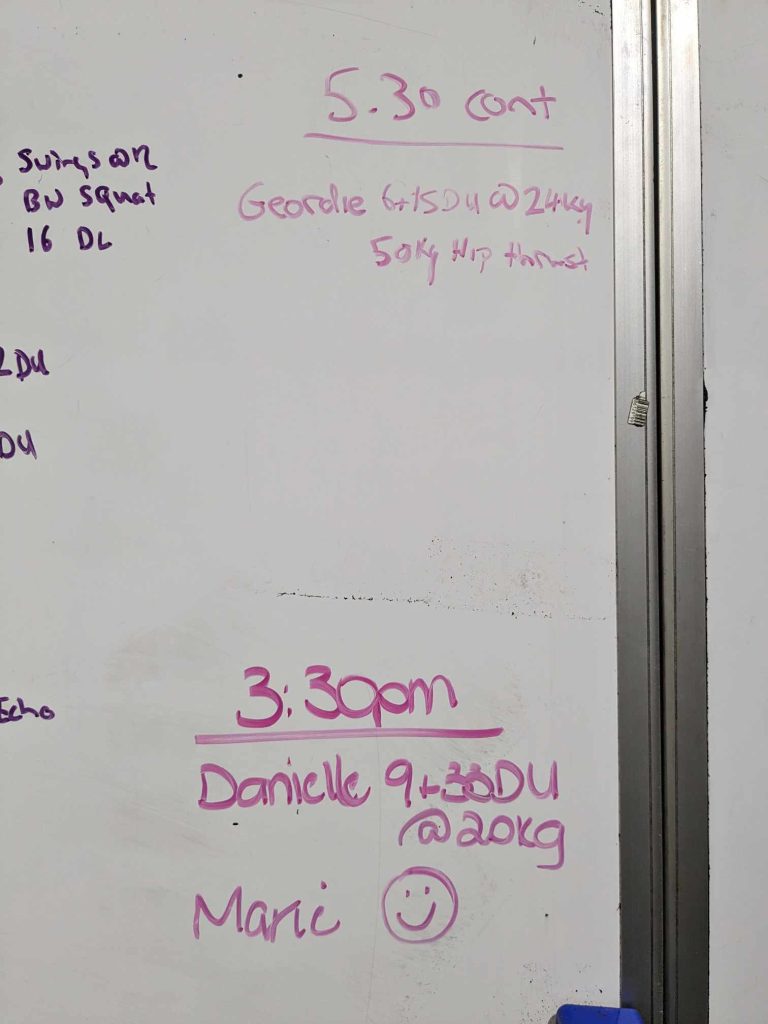 Swings @12
BW Squat
16 DL
2DU
DU
Echo
5.30 cont
Geordie 6+15DU @ 24kg
50kg Hip thrust
3:30pm
Danielle 9+33DU
@20kg
Marie